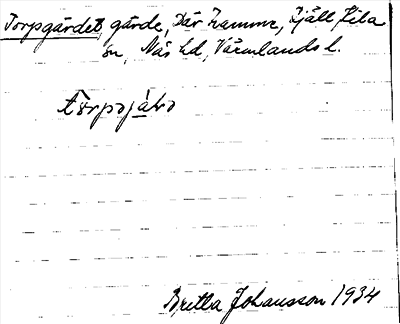 Torpgärdet, gärde, Där hamme, Fjäll, Kila
sn, Näs hd, Värmlands l.
Britta Johansson 1934